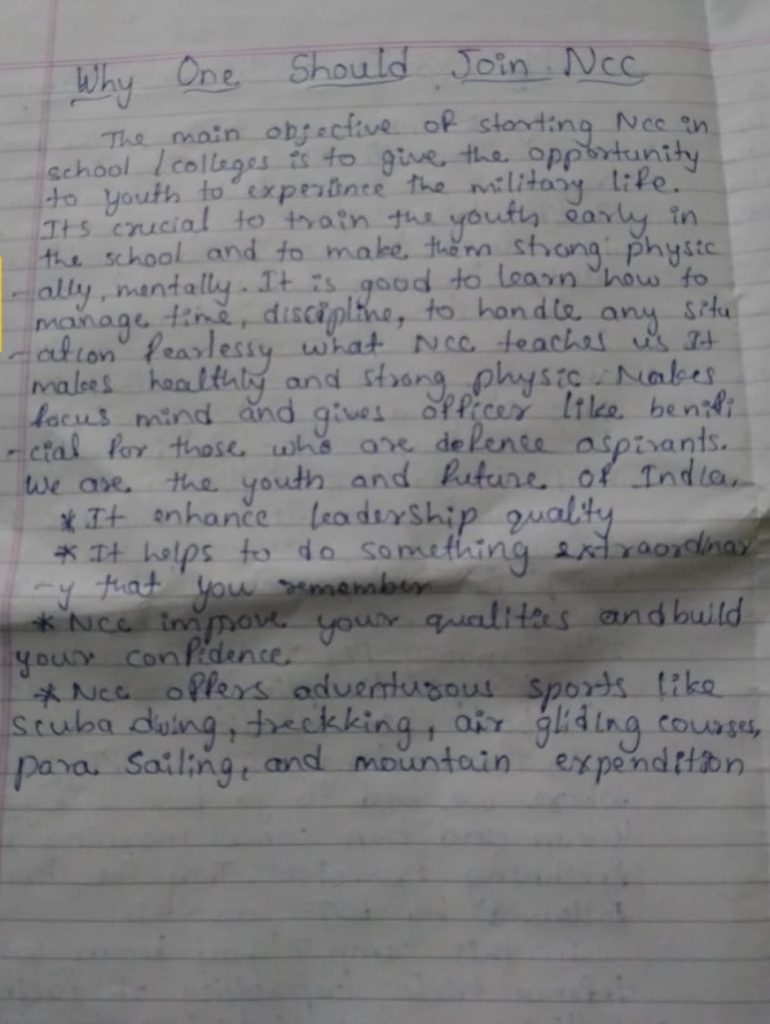 Why One Should Join Ncc
The main objective of starting Ncc in
school / colleges is to give the opportunity
to youth to experience the military life.
Its crucial to train the youth early in
the school and to make them strong physic
- ally, mentally. It is good to learn how to
manage time, discipline, to handle any situ
- ation fearlessy what Ncc teaches us It
makes healthly and strong physic. Makes
focus mind and gives officer like benifi
- cial for those who are defence aspirants.
We are the youth and future of India.
* It enhance leadership quality
* It helps to do something extraordinar
- y that you remember
* Ncc improve your qualities and build
your confidence.
* Ncc offers adventurous sports like
scuba diving, treckking, air gliding courses,
para sailing, and mountain expendition